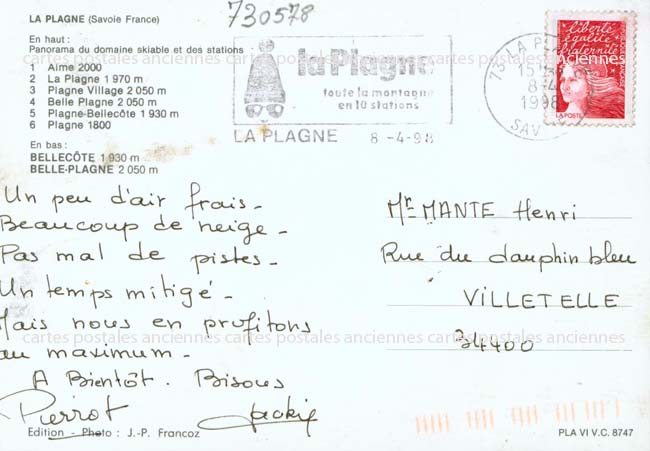 730578
LA PLAGNE (Savoie France)
En haut :
Panorama du domaine skiable et des stations
1 Aime 2000
2 La Plagne 1 970 m
3 Plagne Village 2 050 m
4 Belle Plagne 2 050 m
5 Plagne-Bellecôte 1 930 m
6 Plagne 1800
En bas :
BELLECÔTE 1 930 m
BELLE-PLAGNE 2 050 m
la Plagne
toute la montagne
en 10 stations
LA PLAGNE 8-4-98
73 LA PLA
15 H
8-4
1998
SAV
liberté
égalité
fraternité
LA POSTE
cartes postales anciennes cartes postales anciennes cartes postales anciennes
Un peu d'air frais_
Beaucoup de neige_
Pas mal de pistes_
Un temps mitigé_
Mais nous en profitons
au maximum_
A Bientôt. Bisous
Pierrot Jackie
Mr MANTE Henri
Rue du dauphin bleu
VILLETELLE
34400
cartes postales anciennes cartes postales anciennes cartes postales anciennes
Edition - Photo : J.-P. Francoz
PLA VI V.C. 8747